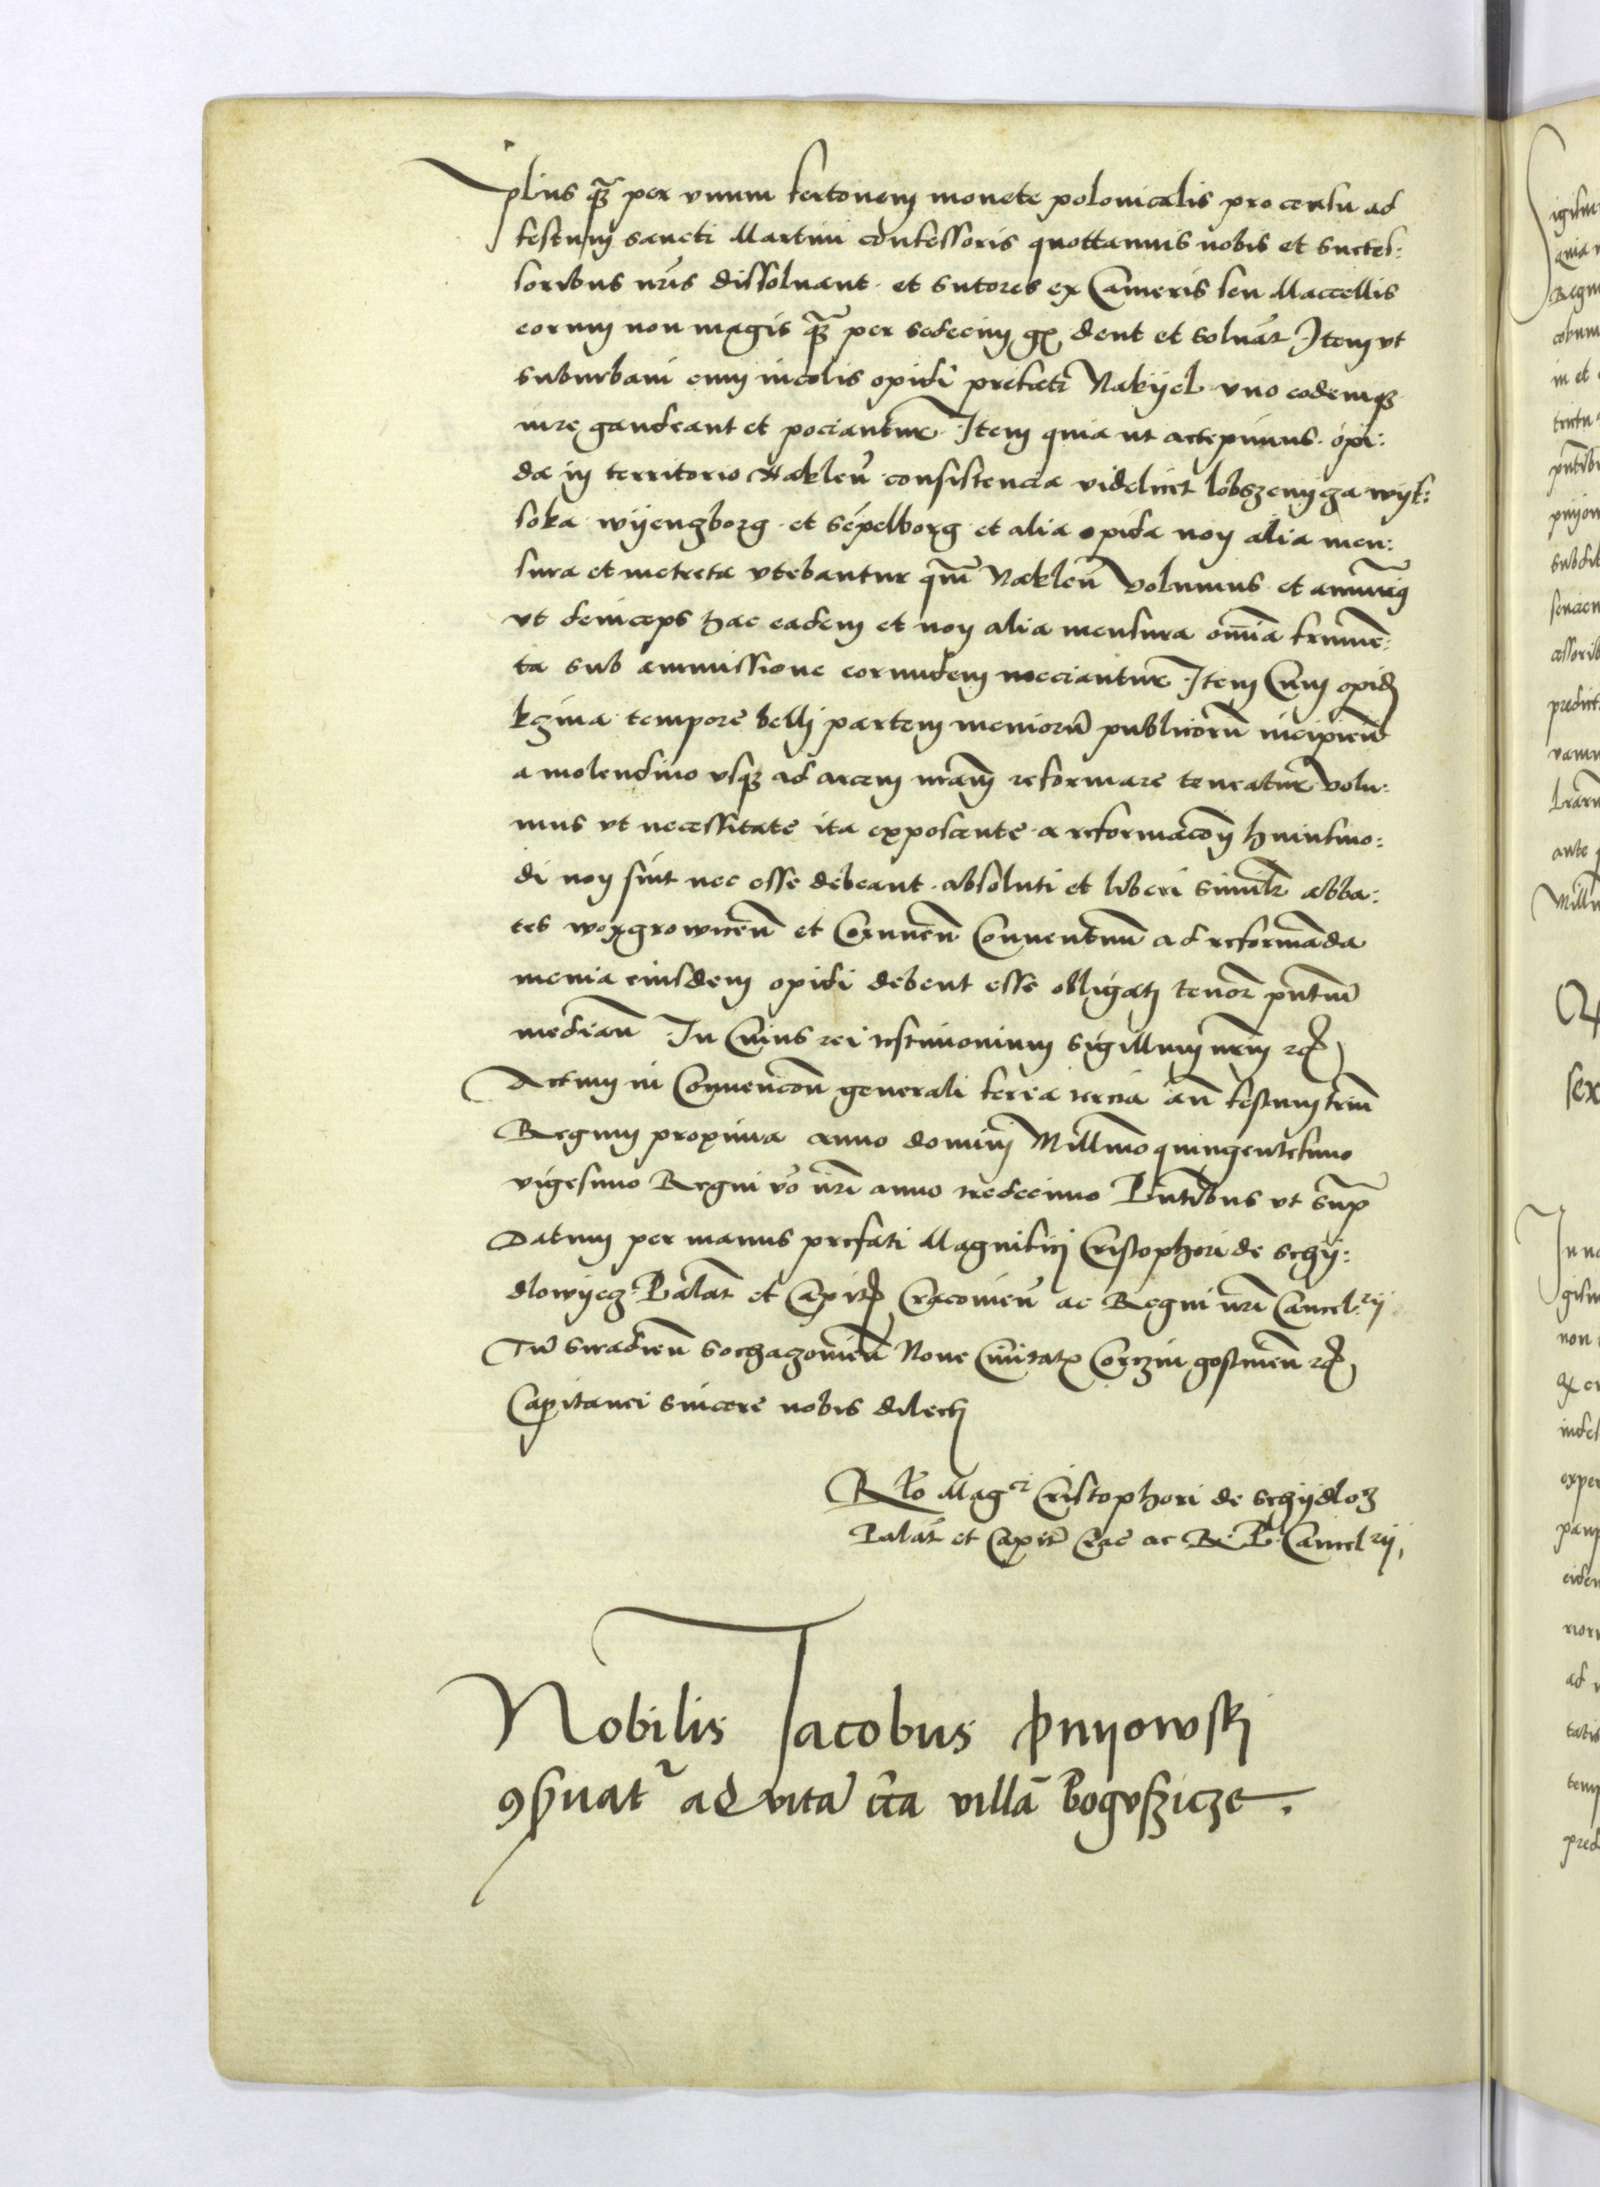 plus q̃ꝫ per vnum fertonem monete polonicalis pro censu ad
festum sancti Martini confessoris quottannis nobis et succes:
soribus nr̃is dissoluant. et sutores ex Cameris seu Maccellis
eorum non magis q̃ꝫ per sedecim gꝝ dent et soluãt Item vt
suburbani cum incolis opidi prefati Nakijel vno eodemqꝫ
iure gaudeant et pociantur Item quia ut accepimus. opi:
da in territorio Naklen̄ consistencia videlicet lobszenycza wijs:
soka wijenczborg et sempelborg et alia opida non alia men:
sura et metreta vtebantur qm̄ Naklen̄ Volumus et
vt deinceps hac eadem et non alia mensura om̄ia frumẽ:
ta sub ammissione eorundem meciantur Item Cum opid
kczina tempore belli partem meniorũ publicorũ incipieñ
a molendino vsqꝫ ad arcem nr̃am reformare teneatur Volu:
mus vt necessitate ita exposcente a reformac̃oñ huiusmo:
di non sint nec esse debeant absoluti et liberi simil̃r abba:
tes wągrowiceñ et Coruneñ Conuentuũ ad reformãda
menia eiusdem opidi debent esse obligati tenor̃ pñtiũ
mediañ In Cuius rei testimonium sigillum nr̃um
Actum in Conuencoñ generali feria tercia añ festum triũ
Regum proxima anno domini Mill̃mo quingentesimo
vigesimo Regni ṽo nr̃i anno tredecimo Pñtibus vt supᵃ
Datum per manus prefati Magnifici Cristophori de schij:
dlowijecz Palat̃ et Capit̃ Cracouieñ ac Regni nr̃i Cancelrij
Tũ siradieñ sochaczouieñ Noue Ciuitatꝭ Corczin gostineñ
Capitanei sincere nobis dilecti
R̃lo Magci Cristophori de schijdloꝫ
Palat̃ et Capit̃ Crac̃ ac R. P. Cancelrij
Nobilis Jacobus pnijowskj
ꝯseruatᷣ ad vitã c̃ca villã Boguſzicze.